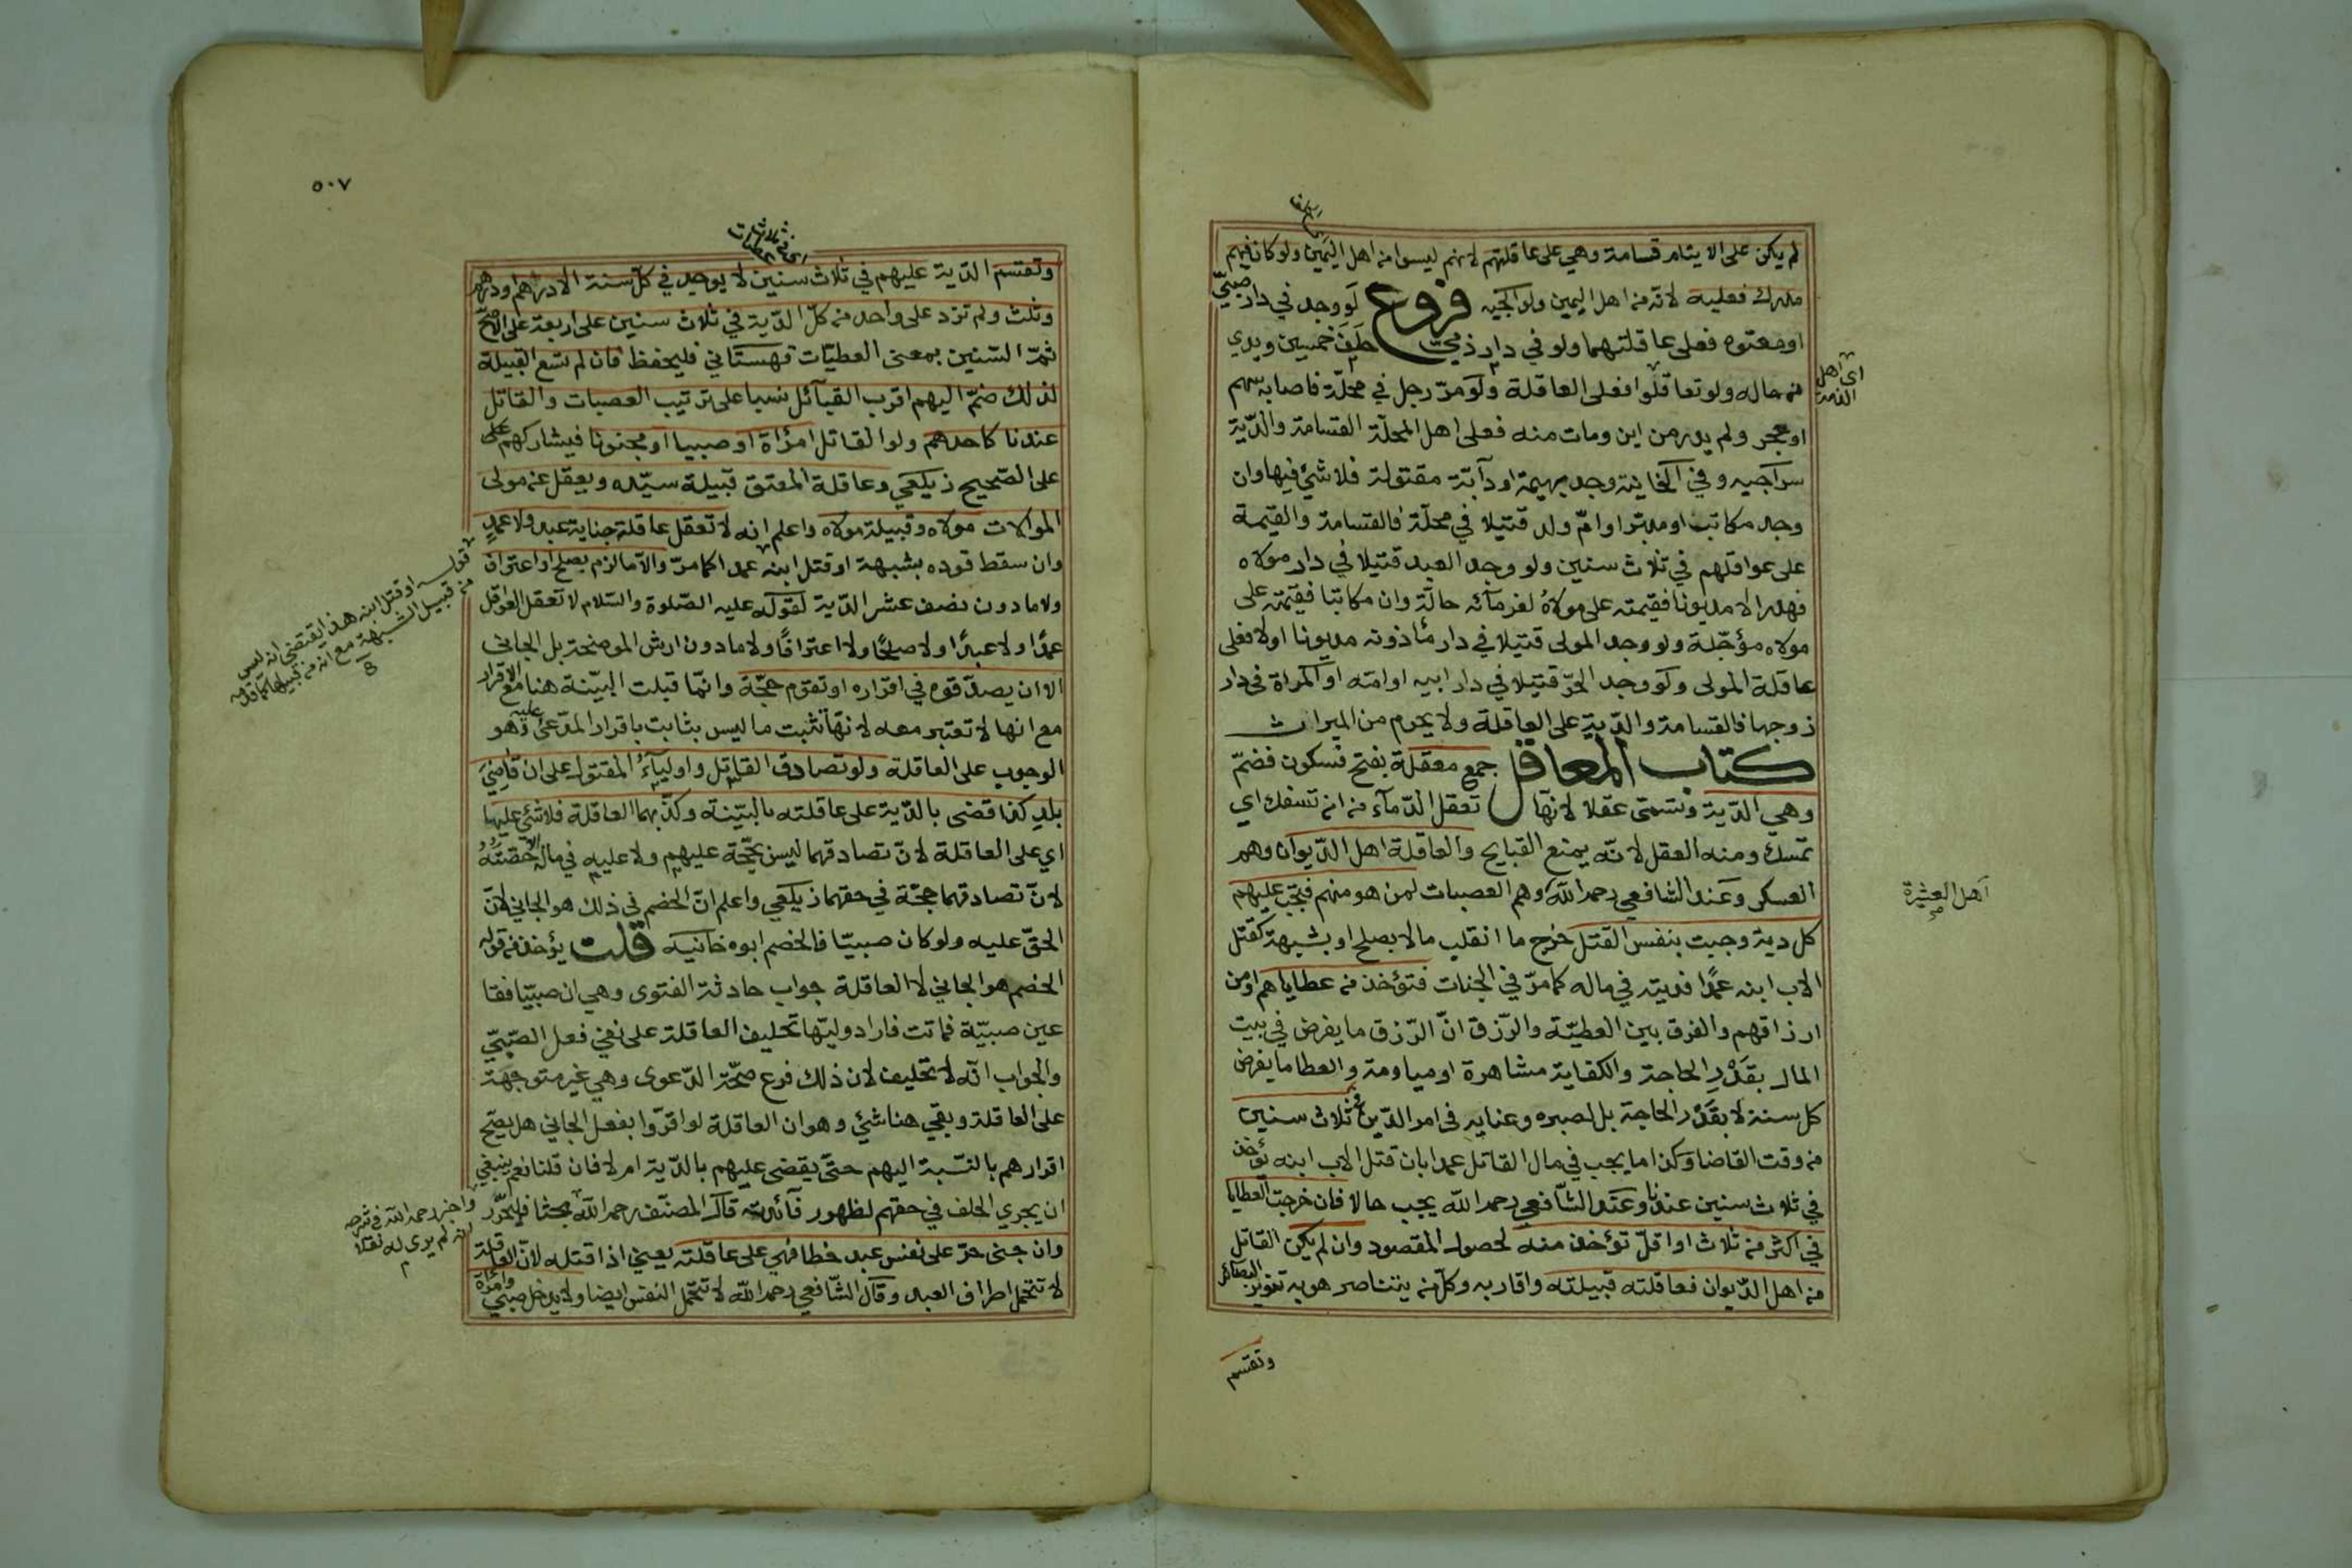 لم يكن على الايتام قسامة وهي على عاقلتهم لانهم ليسوا من اهل اليمين ولو كان فيهم
مدرك فعليه لانه من اهل اليمين ولوالجيه فروع لو وجد في دار صبيّ
او معتوه فعلى عاقلتهما ولو في دار ذميّ حلف خمسين ويدي
من ماله ولو تعاقلوا فعلى العاقلة ولو مرّ رجل في محلّة فاصابه سهم
اي اهل الذمة
او حجر ولم يدر من اين ومات منه فعلى اهل المحلّة القسامة والدّية
سراجيه وفي الخانية وجد بهيمة او دآبّة مقتولة فلا شئ فيها وان
وجد مكاتب او مدبّر او امّ ولد قتيلا في محلّة فالقسامة والقيمة
على عواقلهم في ثلاث سنين ولو وجد العبد قتيلا في دار مولاه
فهدر الا مديونا فقيمته على مولاه لغرمآئه حالّة وان مكاتبا فقيمته على
مولاه مؤجّلة ولو وجد المولى قتيلا في دار مأذونه مديونا اولا فعلى
عاقلة المولى ولو وجد الحرّ قتيلا في دار ابيه او امّه او المراة في دار
زوجها فالقسامة والدّية على العاقلة ولا يحرم من الميراث
كتاب المعاقل جمع معقلة بفتح فسكون فضمّ
وهي الدّية وتسمّى عقلا لانّها تعقل الدّمآء من ان تسفك اي
تمسك ومنه العقل لانّه يمنع القبايح والعاقلة اهل الدّيوان وهم
العسكر وعند الشافعي رحمه اللّه وهم العصبات لمن هو منهم فيجب عليهم
اهل العشيرة
كل دية وجبت بنفس القتل خرج ما انقلب مالا بصلح او بشبهة كقتل
الاب ابنه عمدًا فديته في ماله كما مرّ في الجنات فتؤخذ من عطاياهم او من
ارزاقهم والفرق بين العطيّة والرّزق انّ الرّزق ما يفرض في بيت
المال بقدر الحاجة والكفاية مشاهرة او مياومة والعطا ما يفرض
كل سنة لا بقدر الحاجة بل لصبره وعنايه في امر الدّين في ثلاث سنين
من وقت القضا وكذا ما يجب في مال القاتل عمدا بان قتل الاب ابنه تؤخذ
في ثلاث سنين عندنا وعند الشّافعي رحمه اللّه يجب حالا فان خرجت العطايا
في اكثر من ثلاث او اقلّ تؤخذ منه لحصول المقصود وان لم يكن القاتل
من اهل الدّيوان فعاقلته قبيلته واقاربه وكلّ من يتناصر هو به تنوير البصآئر
وتقسم
٥٠٧
وتقسم الدّية عليهم في ثلاث سنين لا يوخذ في كلّ سنة الا درهم او درهم
وثلث ولم تزد على واحد من كلّ الدّية في ثلاث سنين على اربعة على الاصحّ
ثمّ السّنين بمعنى العطيّات قهستاني فليحفظ فان لم تسع القبيلة
لذلك ضمّ اليهم اقرب القبآئل نسبا على ترتيب العصبات والقاتل
عندنا كاحدهم ولو القاتل امرأة او صبيا او مجنونا فيشاركهم على
على الصّحيح زيلعي وعاقلة المعتق قبيلة سيّده ويعقل عن مولى
الموالات مولاه وقبيلة مولاه واعلم انه لا تعقل عاقلة جناية عبد ولا عمد
وان سقط قوده بشبهة او قتل ابنه عمدا كما مرّ ولا ما لزم بصلح او اعتراف
قوله او قتل ابنه هذا يقتضي انه ليس
من قبيل الشبهة مع انه من قبيلها كما قدمه
ولا ما دون نصف عشر الدّية لقوله عليه الصّلوة والسّلام لا تعقل العواقل
عمدًا ولا عبدًا ولا صلحًا ولا اعترافًا ولا ما دون ارش الموضحة بل الجاني
الا ان يصدّقوه في اقراره او تقوم حجّة وانّما قبلت البيّنة هنا مع الاقرار
مع انها لا تعتبر معه لانّها تثبت ما ليس بثابت باقرار المدّعى عليه وهو
الوجوب على العاقلة ولو تصادق القاتل واوليآء المقتول على ان قاضي
بلد كذا قضى بالدّية على عاقلته بالبيّنة وكذّبهما العاقلة فلا شئ عليها
اي على العاقلة لانّ تصادقهما ليس بحجّة عليهم ولا عليه في ماله الا حصّته
لانّ تصادقهما حجّة في حقهما زيلعي واعلم انّ الخصم في ذلك هو الجاني لانّ
الحقّ عليه ولو كان صبيّا فالخصم ابوه خانيه قلت يؤخذ من قوله
الخصم هو الجاني لا العاقلة جواب حادثة الفتوى وهي ان صبيّا فقا
عين صبيّة فماتت فاراد وليّها تحليف العاقلة على نفي فعل الصّبيّ
والجواب انّه لا تحليف لان ذلك فرع صحّة الدّعوى وهي غير متوجهة
على العاقلة وبقي هنا شئ وهو ان العاقلة لو اقرّوا بفعل الجاني هل يصحّ
اقرارهم بالنّسبة اليهم حتّى يقضى عليهم بالدّية ام لا فان قلنا نعم ينبغي
ان يجري الحلف في حقهم لظهور فآئدته قال المصنّف رحمه اللّه بحثا فليحرّر
واخبر رحمه اللّه في شرحه
انه لم يرى له نقلا
وان جنى حرّ على نفس عبد خطا فهي على عاقلته يعني اذا قتله لانّ العاقلة
لا تتحمل اطراف العبد وقال الشّافعي رحمه اللّه لا تتحمّل النفس ايضا ولا يدخل صبيّ وامرأة